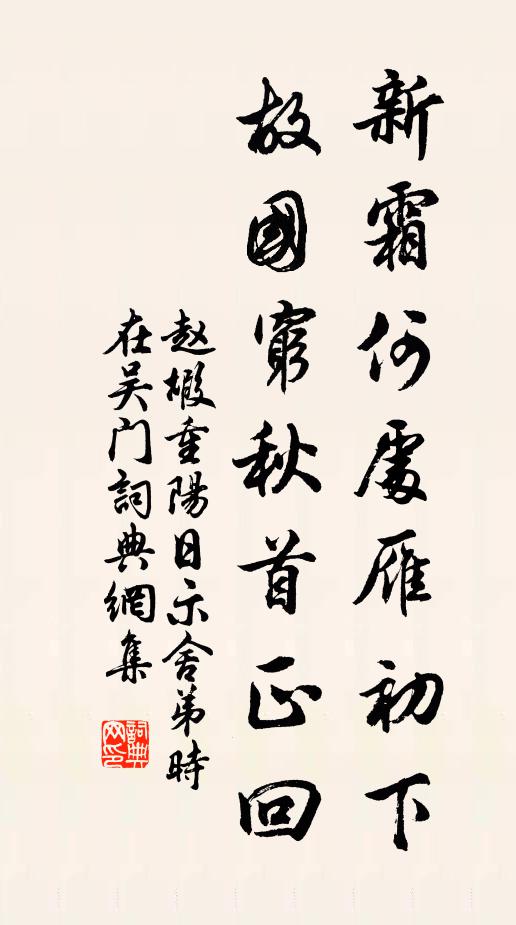 新霜何處雁初下
故國窮秋首正回
赵嘏重陽日示舍弟時
在吴门詞典網集
詞典网印